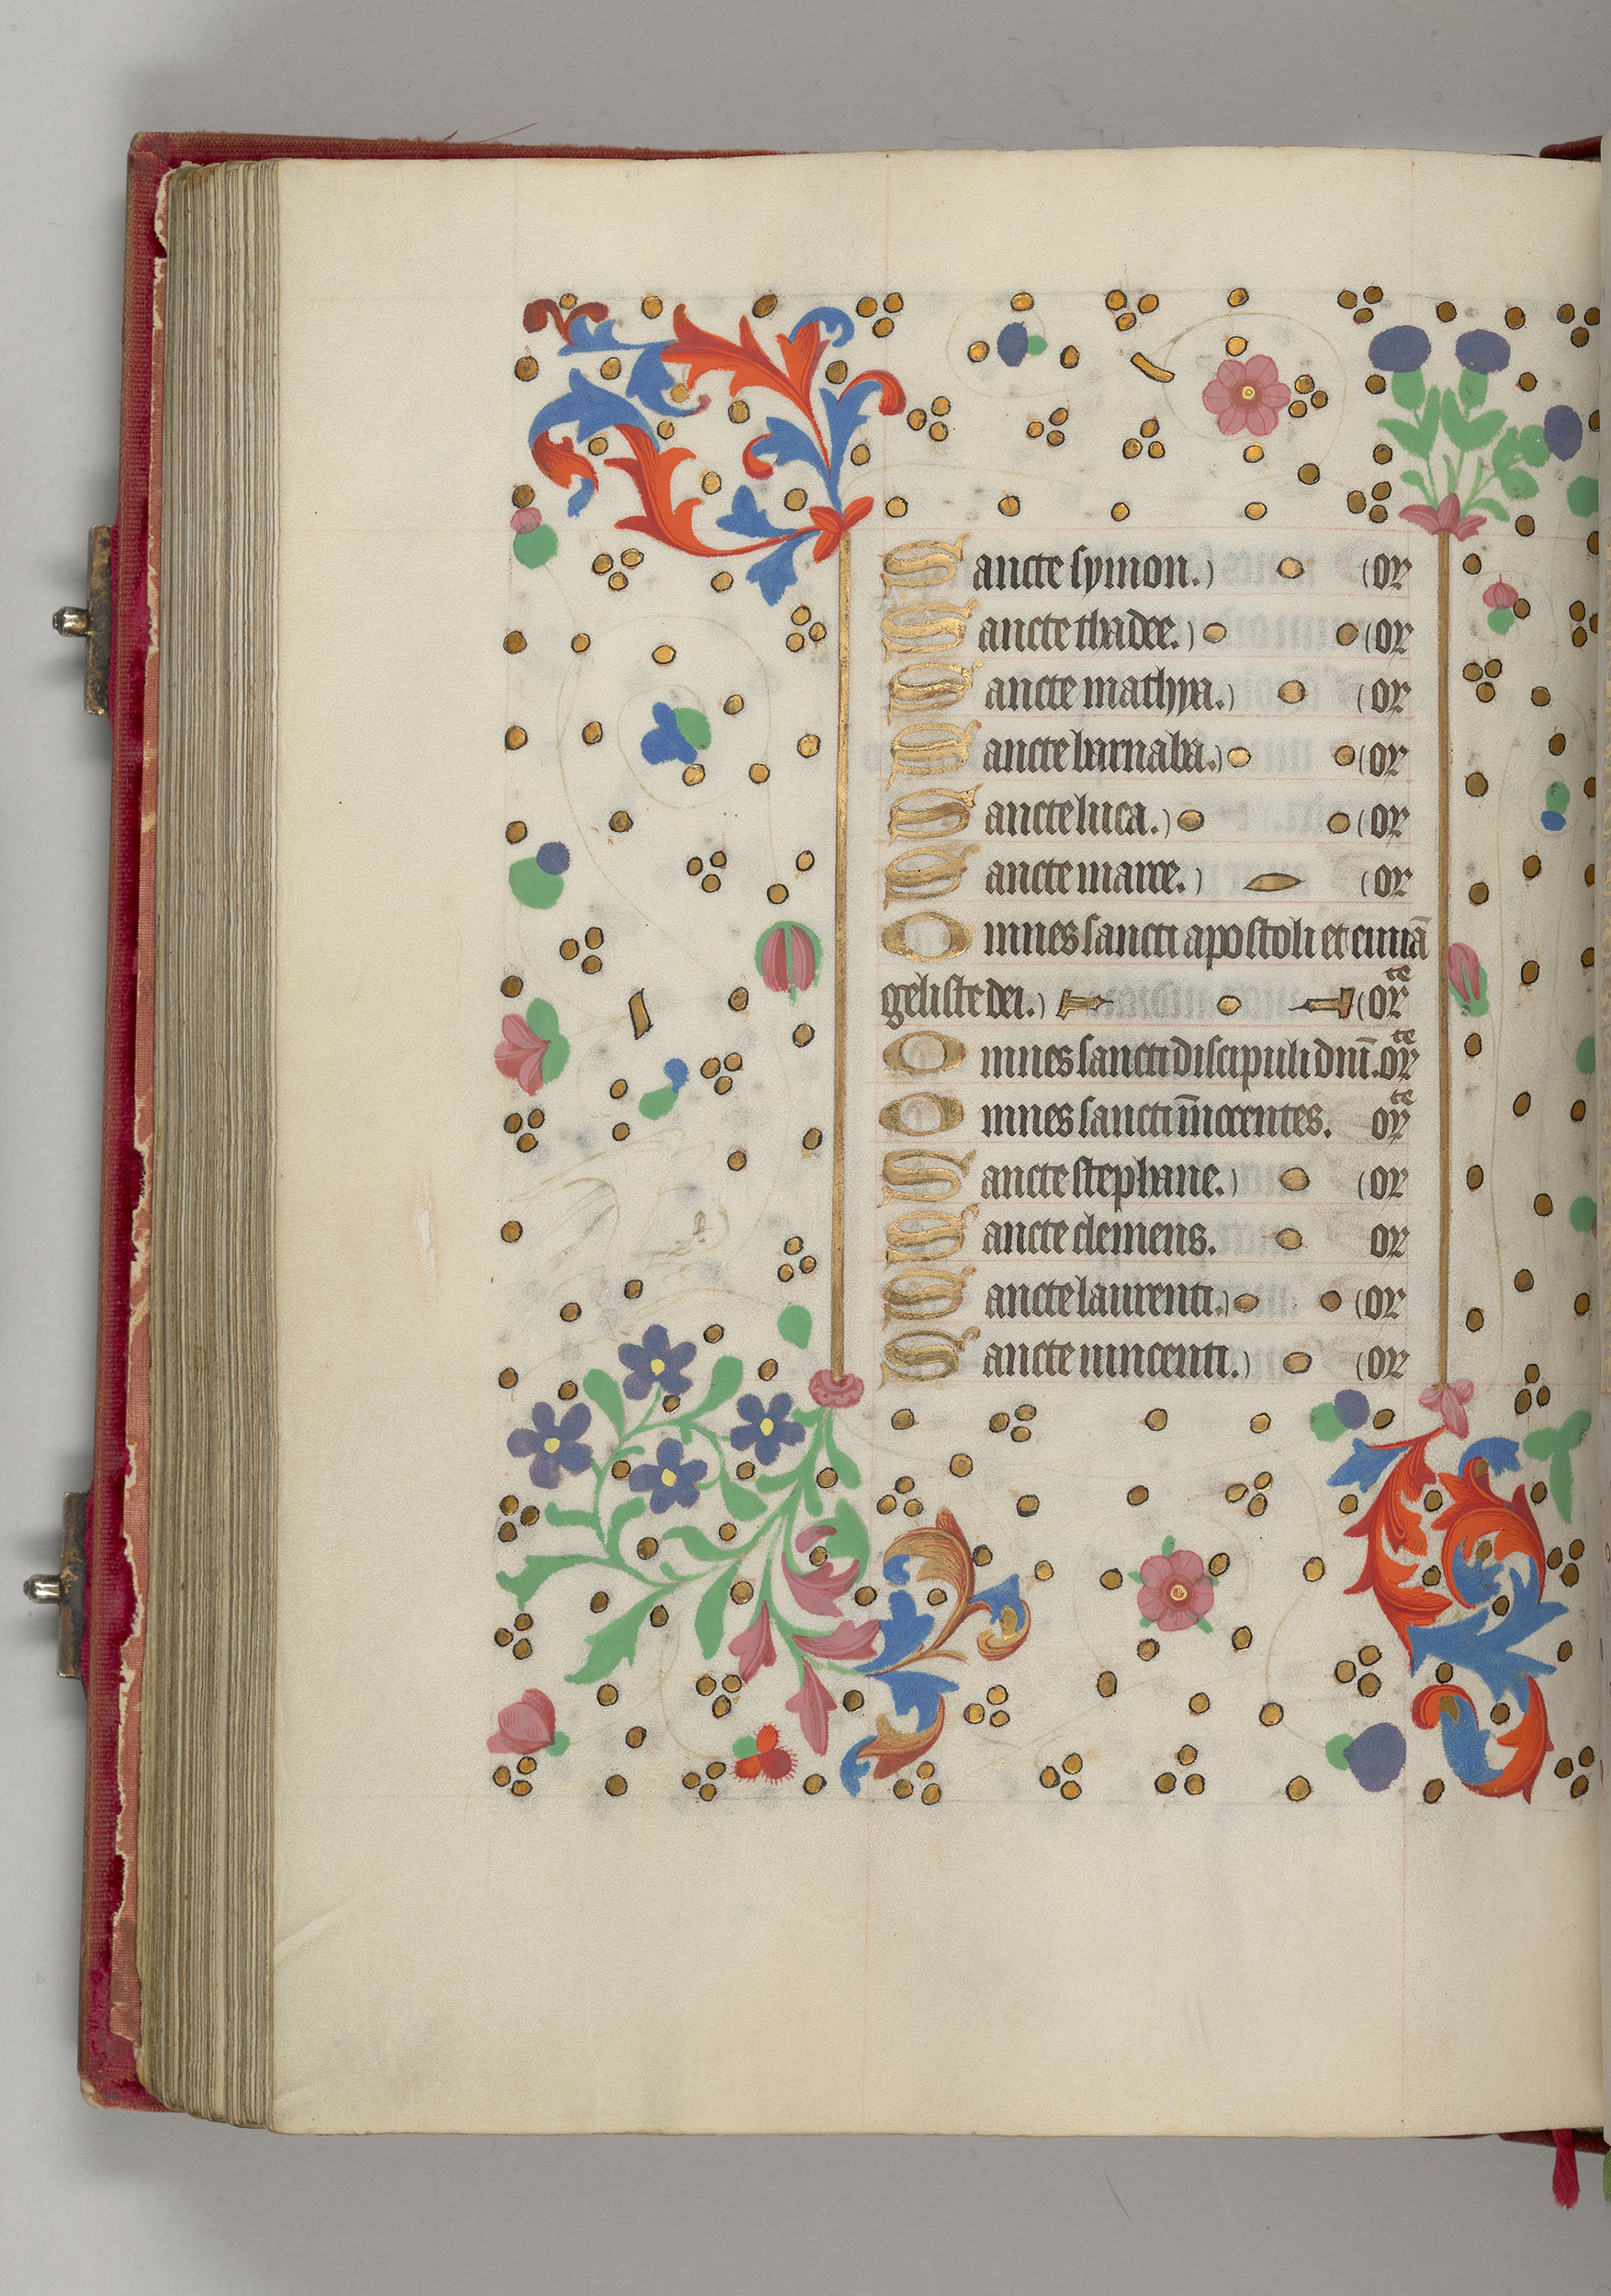 Sancte symon. or
Sancte thadee. or
Sancte mathya. or
Sancte barnaba. or
Sancte luca. or
Sancte marce. or
Omnes sancti apostoli et euuā
geliste dei. orte
Omnes sancti discipuli dnī. orte
Omnes sancti īnocentes. orte
Sancte stephane. or
Sancte clemens. or
Sancte laurenti. or
Sancte uincenti. or